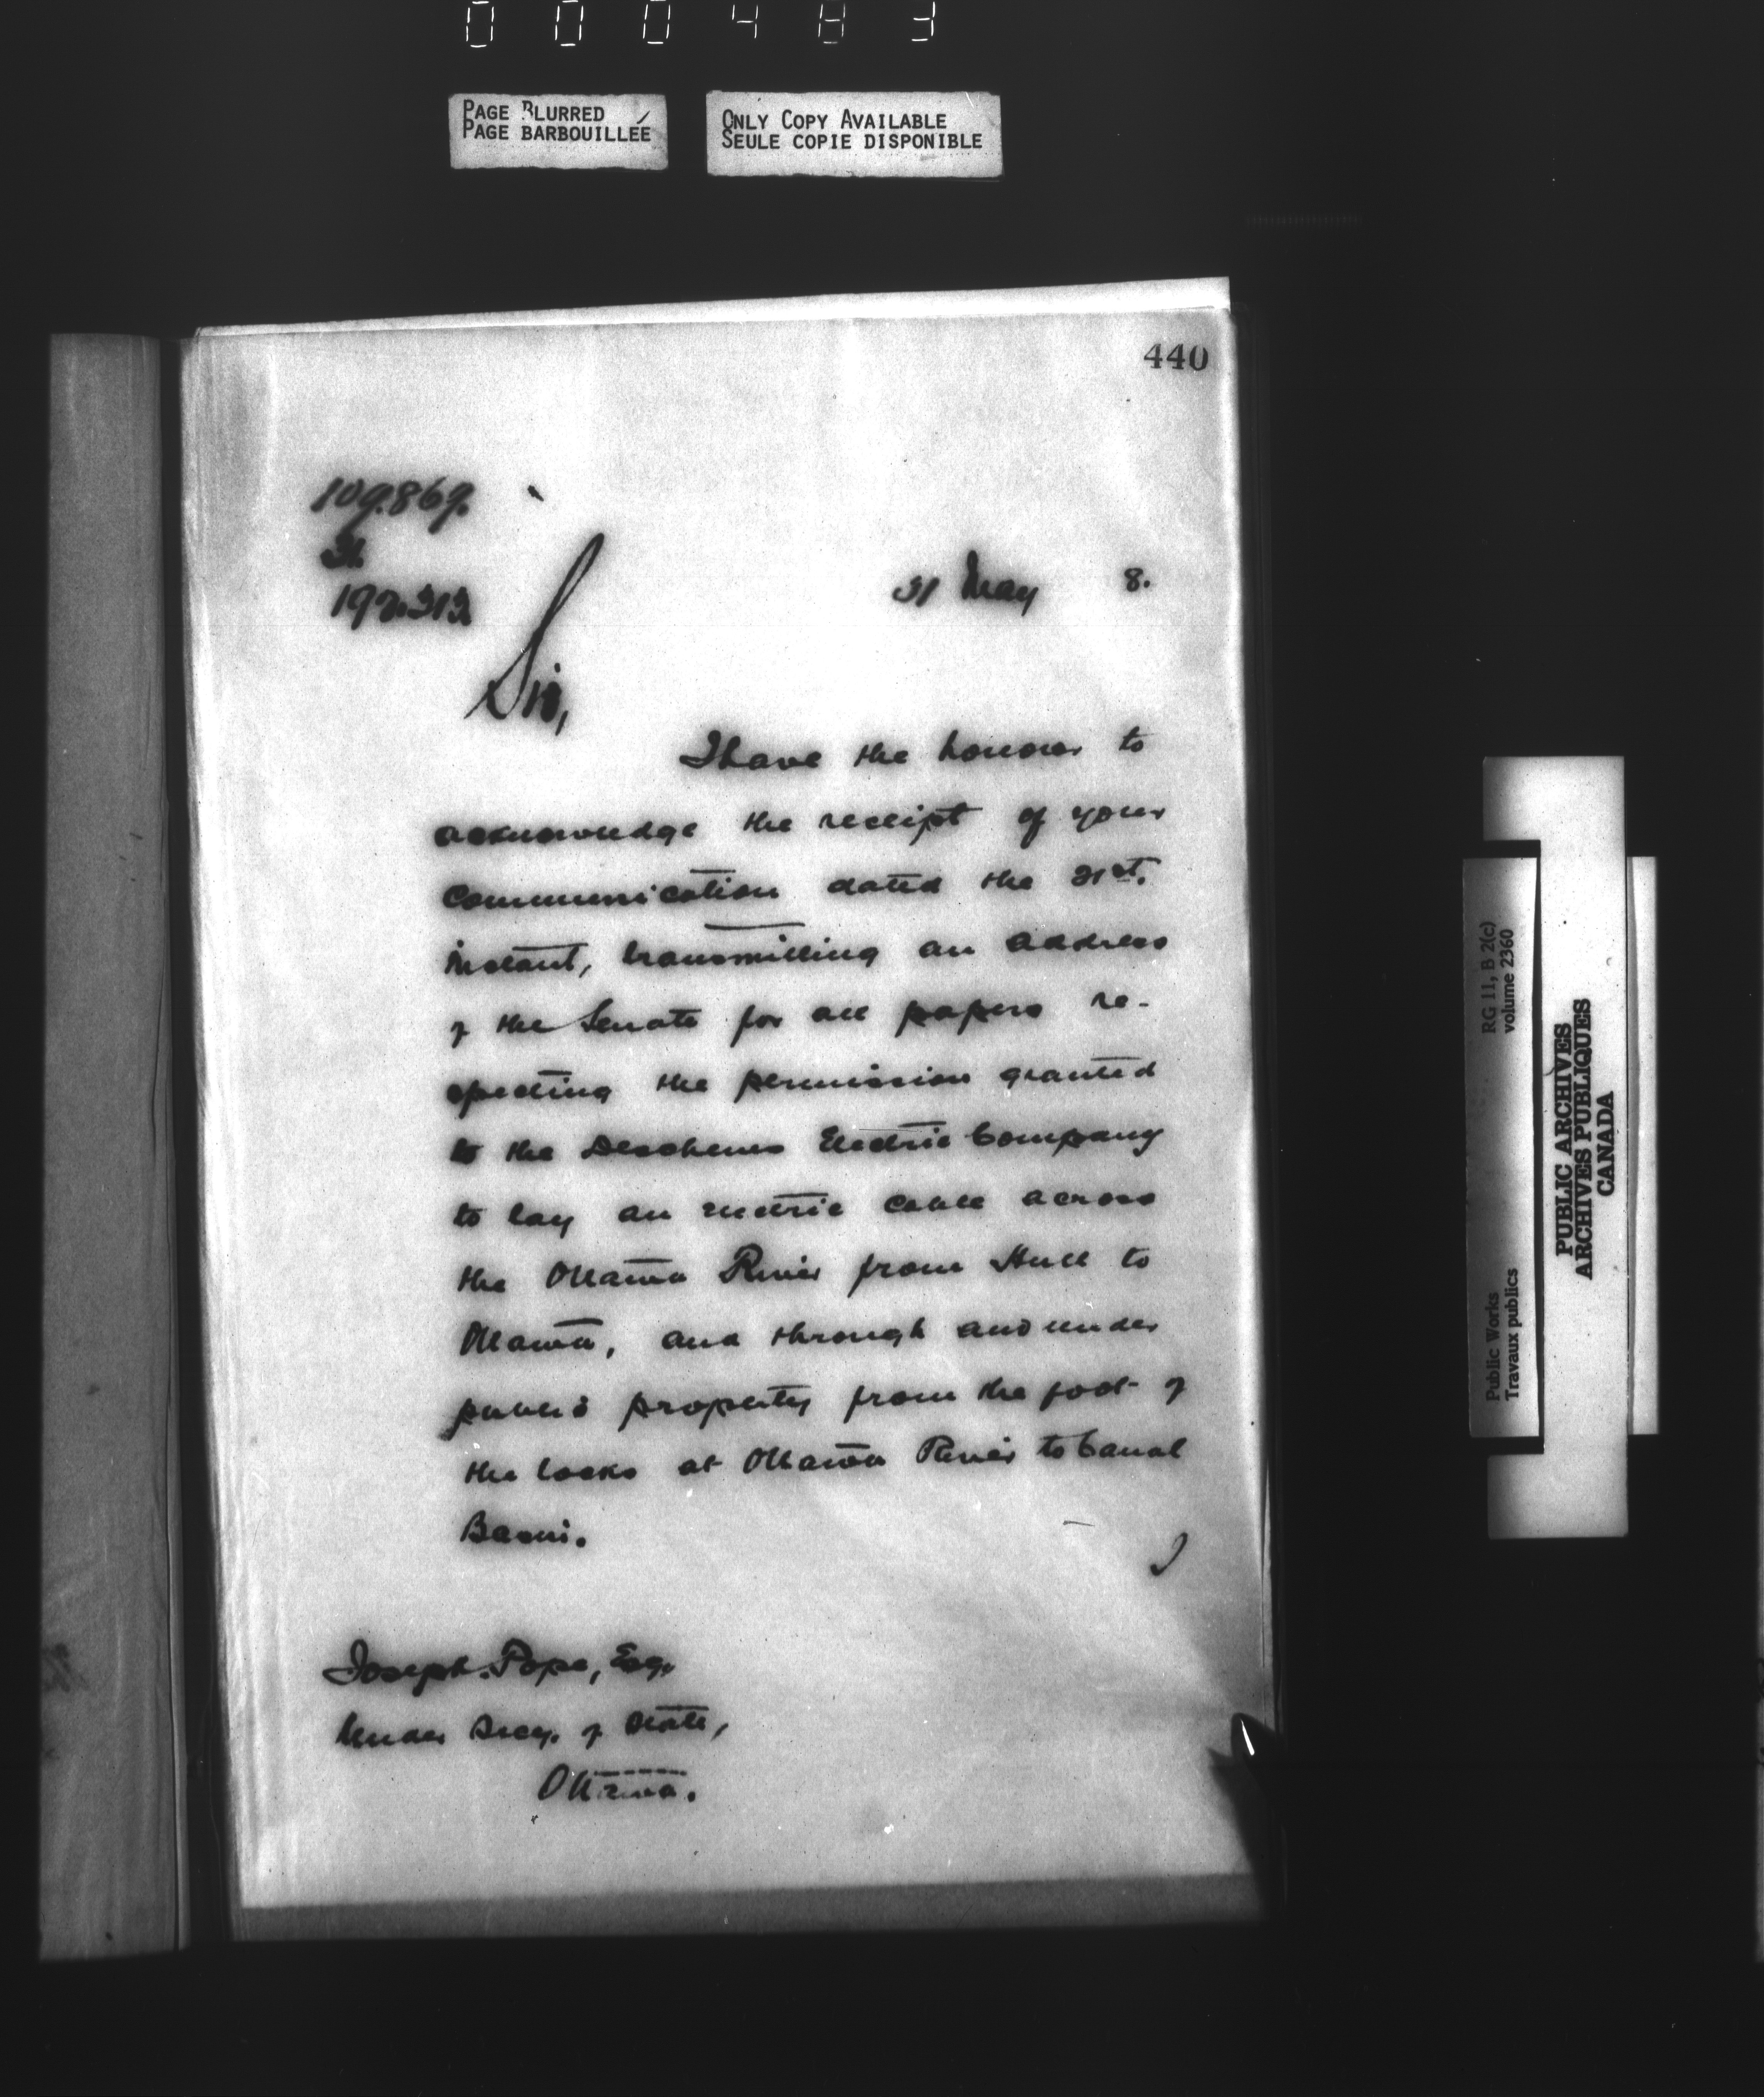 000483
PAGE BLURRED
PAGE BARBOUILLÉE
ONLY COPY AVAILABLE
SEULE COPIE DISPONIBLE
440
109.869.
31 May 8.
Sir,
I have the honour to
acknowledge the receipt of your
communication dated the 21st.
instant, transmitting an address
of the Senate for all papers re-
specting the permission granted
to the Deschenes Electric Company
to lay an electric cable across
the Ottawa River from Hull to
Ottawa, and through and under
public property from the foot of
the locks at Ottawa River to Canal
Basin.
Joseph Pope, Esq.
Under Secy. of State,
Ottawa.
Public Works
Travaux publics
RG 11, B 2(c)
volume 2360
PUBLIC ARCHIVES
ARCHIVES PUBLIQUES
CANADA